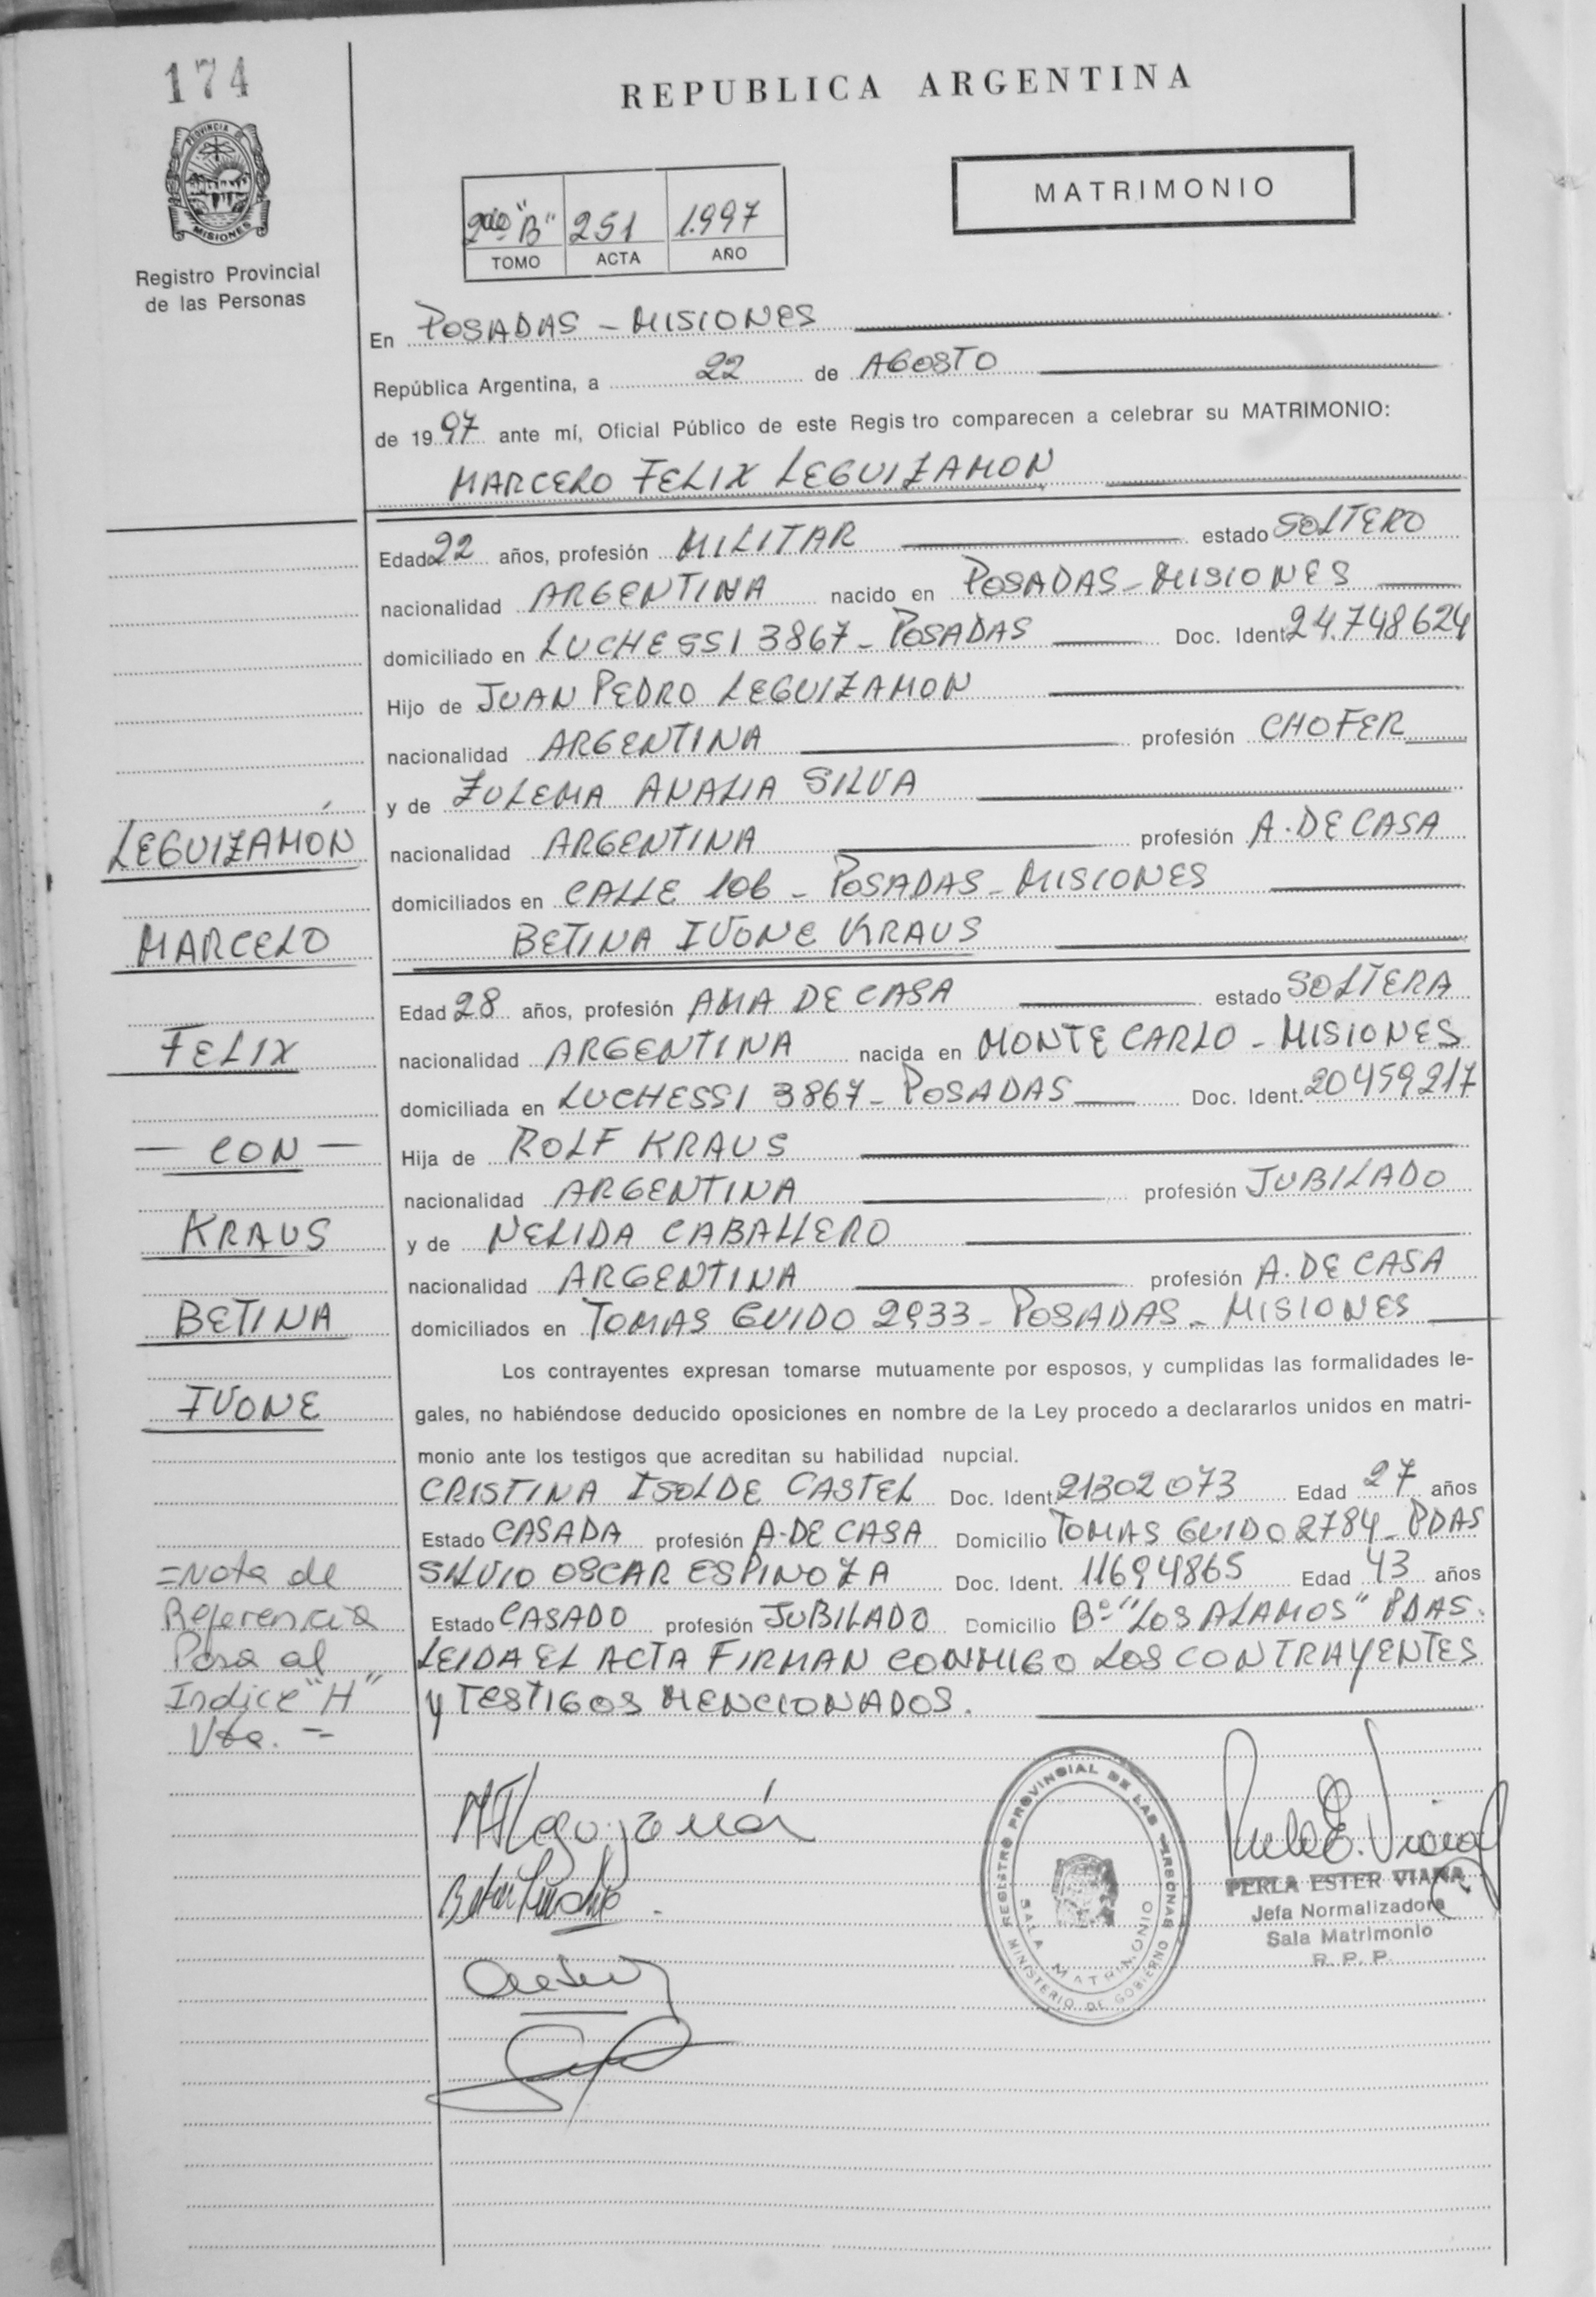 174
REPUBLICA ARGENTINA
PROVINCIA DE MISIONES
Registro Provincial
de las Personas
2do "B" 251 1.997
TOMO ACTA AÑO
MATRIMONIO
En POSADAS - MISIONES
República Argentina, a 22 de AGOSTO
de 1997 ante mí, Oficial Público de este Regis tro comparecen a celebrar su MATRIMONIO:
MARCELO FELIX LEGUIZAMON
Edad 22 años, profesión MILITAR estado SOLTERO
nacionalidad ARGENTINA nacido en POSADAS - MISIONES
domiciliado en LUCHESSI 3867 - POSADAS Doc. Ident. 24.748624
Hijo de JUAN PEDRO LEGUIZAMON
nacionalidad ARGENTINA profesión CHOFER
y de ZULEMA ANALIA SILVA
LEGUIZAMÓN
nacionalidad ARGENTINA profesión A. DE CASA
domiciliados en CALLE 106 - POSADAS - MISIONES
MARCELO
BETINA IVONE KRAUS
Edad 28 años, profesión AMA DE CASA estado SOLTERA
FELIX
nacionalidad ARGENTINA nacida en MONTE CARLO - MISIONES
domiciliada en LUCHESSI 3867 - POSADAS Doc. Ident. 20459217
— CON —
Hija de ROLF KRAUS
nacionalidad ARGENTINA profesión JUBILADO
KRAUS
y de NELIDA CABALLERO
nacionalidad ARGENTINA profesión A. DE CASA
BETINA
domiciliados en TOMAS GUIDO 2933 - POSADAS - MISIONES
Los contrayentes expresan tomarse mutuamente por esposos, y cumplidas las formalidades le-
IVONE
gales, no habiéndose deducido oposiciones en nombre de la Ley procedo a declararlos unidos en matri-
monio ante los testigos que acreditan su habilidad nupcial.
CRISTINA ISOLDE CASTEL Doc. Ident. 21302073 Edad 27 años
Estado CASADA profesión A. DE CASA Domicilio TOMAS GUIDO 2784 - PDAS
=Nota de
SILVIO OSCAR ESPINOZA Doc. Ident. 11694865 Edad 43 años
Referencia
Estado CASADO profesión JUBILADO Domicilio Bº "LOS ALAMOS" PDAS.
Pasa al
LEIDA EL ACTA FIRMAN CONMIGO LOS CONTRAYENTES
Indice "H"
Y TESTIGOS MENCIONADOS.
Vta. =
REGISTRO PROVINCIAL DE LAS PERSONAS
SALA MATRIMONIO
MINISTERIO DE GOBIERNO
PERLA ESTER VIANA
Jefa Normalizadora
Sala Matrimonio
R. P. P.